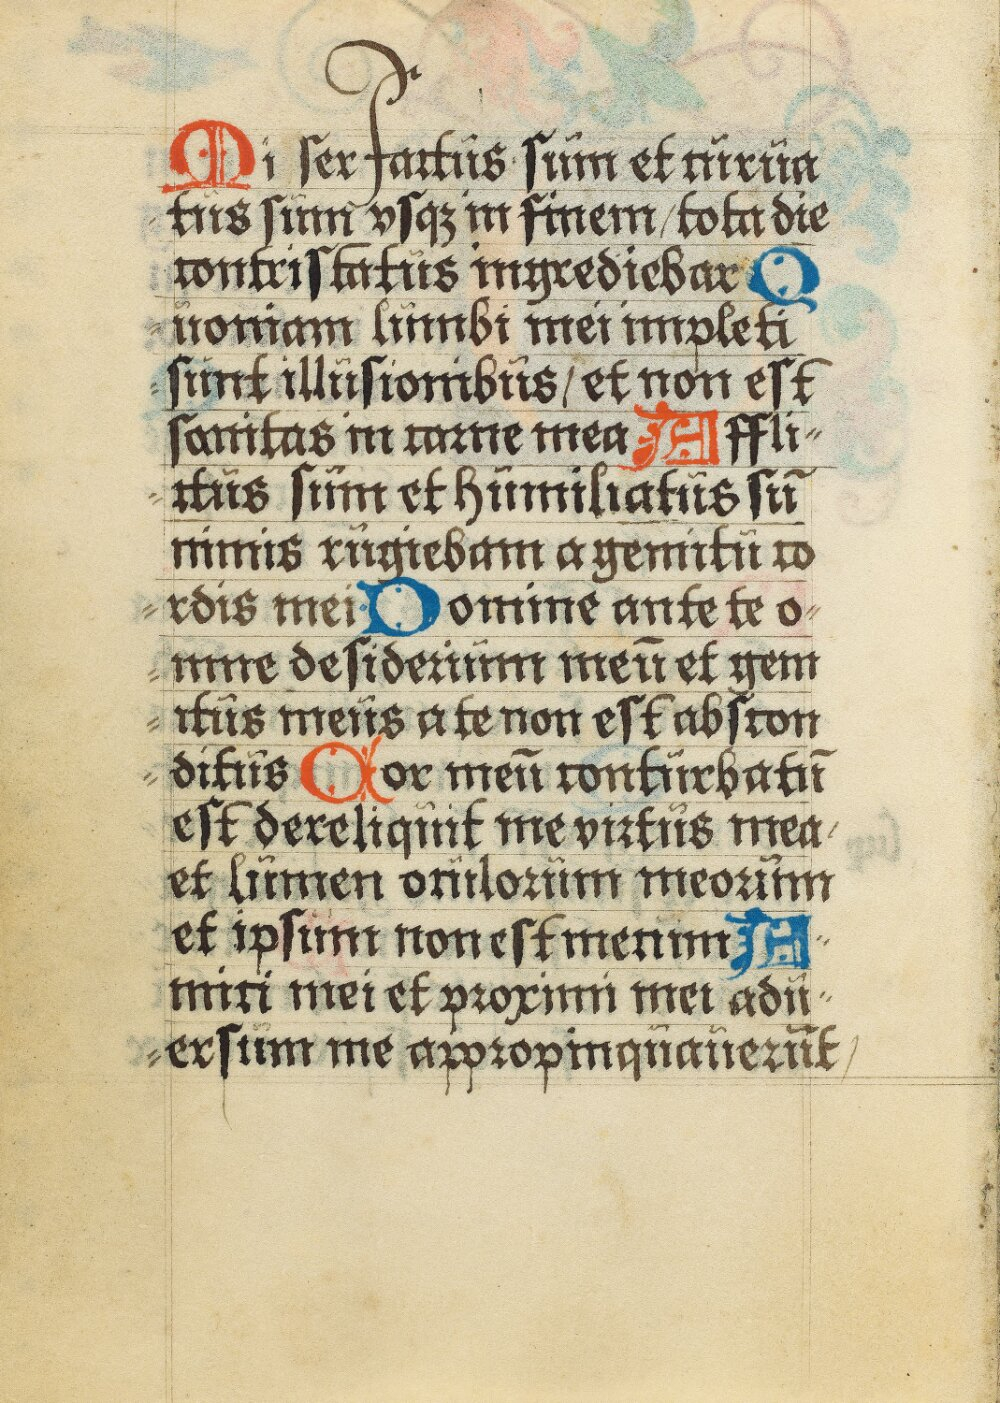 Mi ser factus sum et curua
tus sum vsqz in finem / tota die
contristatus ingrediebar Q
uoniam lumbi mei impleti
sunt illusionibus / et non est
sanitas in carne mea Affli-
ctus sum et humiliatus sū
nimis rugiebam a gemitu co
rdis mei Domine ante te o-
mne desiderium meū et gem
itus meus a te non est abscon
ditus Cor meū conturbatū
est dereliquit me virtus mea
et lumen oculorum meorum
et ipsum non est mecum A-
mici mei et proximi mei adu-
ersum me appropinquauerūt /